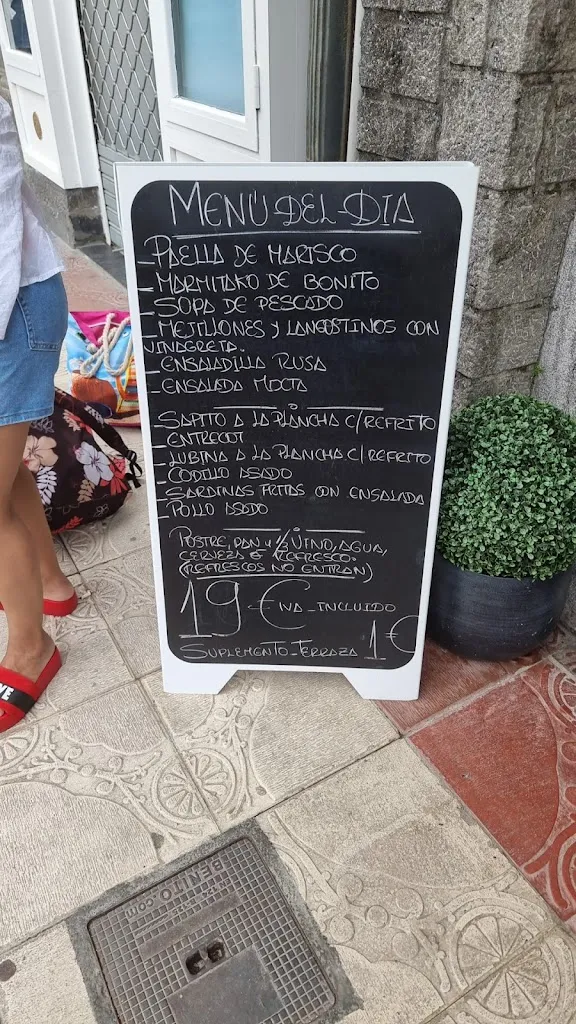 MENÚ DEL DIA
- PAELLA DE MARISCO
- MARMITAKO DE BONITO
- SOPA DE PESCADO
- MEJILLONES Y LANGOSTINOS CON
VINAGRETA.
- ENSALADILLA RUSA
- ENSALADA MIXTA
- SAPITO A LA PLANCHA C/REFRITO
- ENTRECOT
- LUBINA A LA PLANCHA C/REFRITO
- CODILLO ASADO
- SARDINAS FRITAS CON ENSALADA
- POLLO ASADO
POSTRE, PAN Y ½ VINO, AGUA,
CERVEZA Ó REFRESCO.
(REFRESCOS NO ENTRAN)
19 € IVA INCLUIDO
SUPLEMENTO TERRAZA 1€
BENITO.com